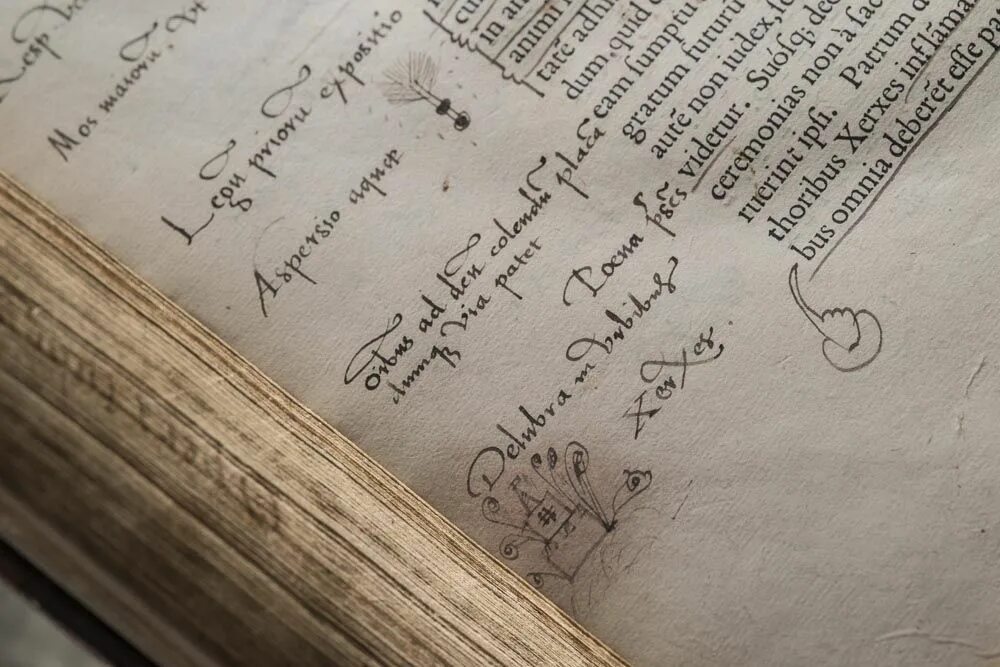 Mos maiorū, Vt
Legū priorū expositio
Aspersio aquæ
Oībus ad deū colendū placā
dumq; via patet
Poena
Delubra in Vrbibus
Xerxes.
in an
animi
tatē adhi
dum, quid d
eam sumptu
gratum futurū
autē non iudex, se
videtur. Suósq; deo
ceremonias non à fac
ruerint ipsi. Patrum
thoribus Xerxes inflāma
bus omnia deberēt esse pa